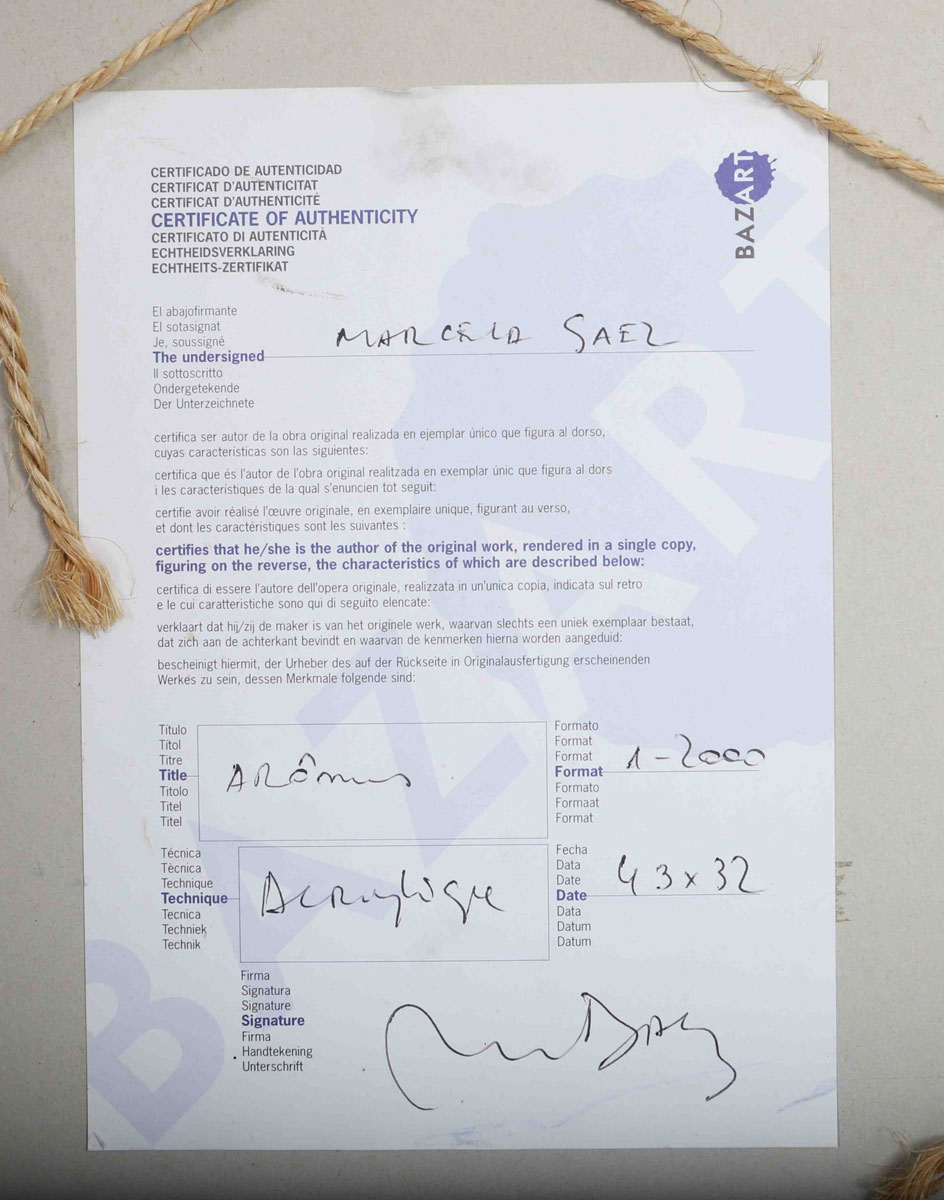 CERTIFICADO DE AUTENTICIDAD
CERTIFICAT D'AUTENTICITAT
CERTIFICAT D'AUTHENTICITÉ
CERTIFICATE OF AUTHENTICITY
CERTIFICATO DI AUTENTICITÀ
ECHTHEIDSVERKLARING
ECHTHEITS-ZERTIFIKAT
BAZART
El abajofirmante
El sotasignat
Je, soussigné
The undersigned MARCELA SAEZ
Il sottoscritto
Ondergetekende
Der Unterzeichnete
certifica ser autor de la obra original realizada en ejemplar único que figura al dorso,
cuyas características son las siguientes:
certifica que és l'autor de l'obra original realitzada en exemplar únic que figura al dors
i les característiques de la qual s'enuncien tot seguit:
certifie avoir réalisé l'œuvre originale, en exemplaire unique, figurant au verso,
et dont les caractéristiques sont les suivantes :
certifies that he/she is the author of the original work, rendered in a single copy,
figuring on the reverse, the characteristics of which are described below:
certifica di essere l'autore dell'opera originale, realizzata in un'unica copia, indicata sul retro
e le cui caratteristiche sono qui di seguito elencate:
verklaart dat hij/zij de maker is van het originele werk, waarvan slechts een uniek exemplaar bestaat,
dat zich aan de achterkant bevindt en waarvan de kenmerken hierna worden aangeduid:
bescheinigt hiermit, der Urheber des auf der Rückseite in Originalausfertigung erscheinenden
Werkes zu sein, dessen Merkmale folgende sind:
Título
Títol
Titre
Title
Titolo
Titel
Titel
Formato
Format
Format
Format 1-2000
Formato
Formaat
Format
Técnica
Tècnica
Technique
Technique Acrylique
Tecnica
Techniek
Technik
Fecha
Data
Date
Date 43x32
Data
Datum
Datum
Firma
Signatura
Signature
Signature
Firma
Handtekening
Unterschrift
BAZART